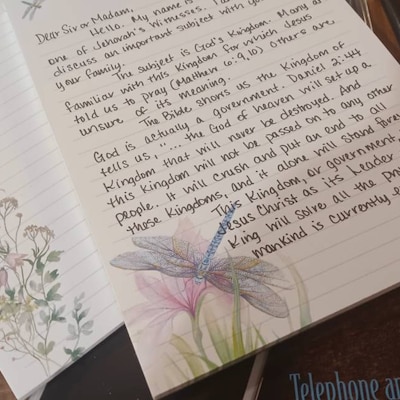 Dear Sir or Madam,
Hello. My name is
one of Jehovah's Witnesses. I a
discuss an important subject with yo
your family.
The subject is God's Kingdom. Many ar
familiar with this Kingdom for which Jesus
told us to pray (Matthew 6:9,10) Others are
unsure of its meaning.
The Bible shows us the Kingdom of
God is actually a government. Daniel 2:44
tells us, "... the God of heaven will set up a
Kingdom that will never be destroyed. And
this Kingdom will not be passed on to any other
people. It will crush and put an end to all
those Kingdoms, and it alone will stand forev
This Kingdom, or government,
Jesus Christ as its leader
King will solve all the pro
mankind is currently e
Telephone an